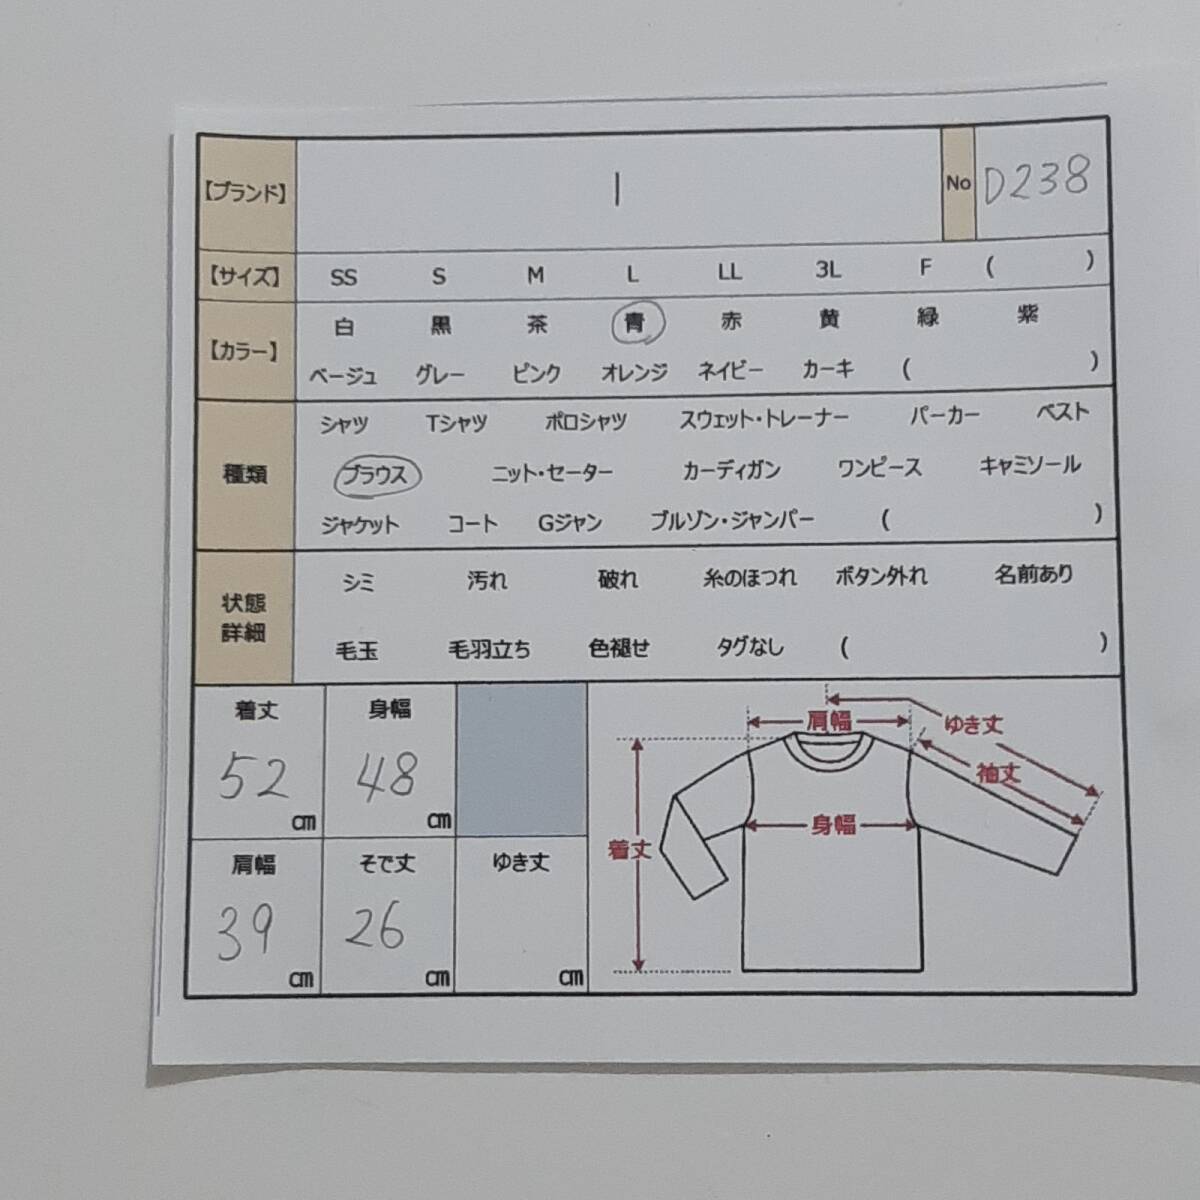 【ブランド】 | No D238
【サイズ】 SS S M L LL 3L F ( )
【カラー】 白 黒 茶 青 赤 黄 緑 紫
ベージュ グレー ピンク オレンジ ネイビー カーキ ( )
種類 シャツ Tシャツ ポロシャツ スウェット・トレーナー パーカー ベスト
ブラウス ニット・セーター カーディガン ワンピース キャミソール
ジャケット コート Gジャン ブルゾン・ジャンパー ( )
状態詳細 シミ 汚れ 破れ 糸のほつれ ボタン外れ 名前あり
毛玉 毛羽立ち 色褪せ タグなし ( )
着丈 身幅
52 cm 48 cm
肩幅 そで丈 ゆき丈
39 cm 26 cm cm
肩幅 ゆき丈
袖丈
身幅
着丈